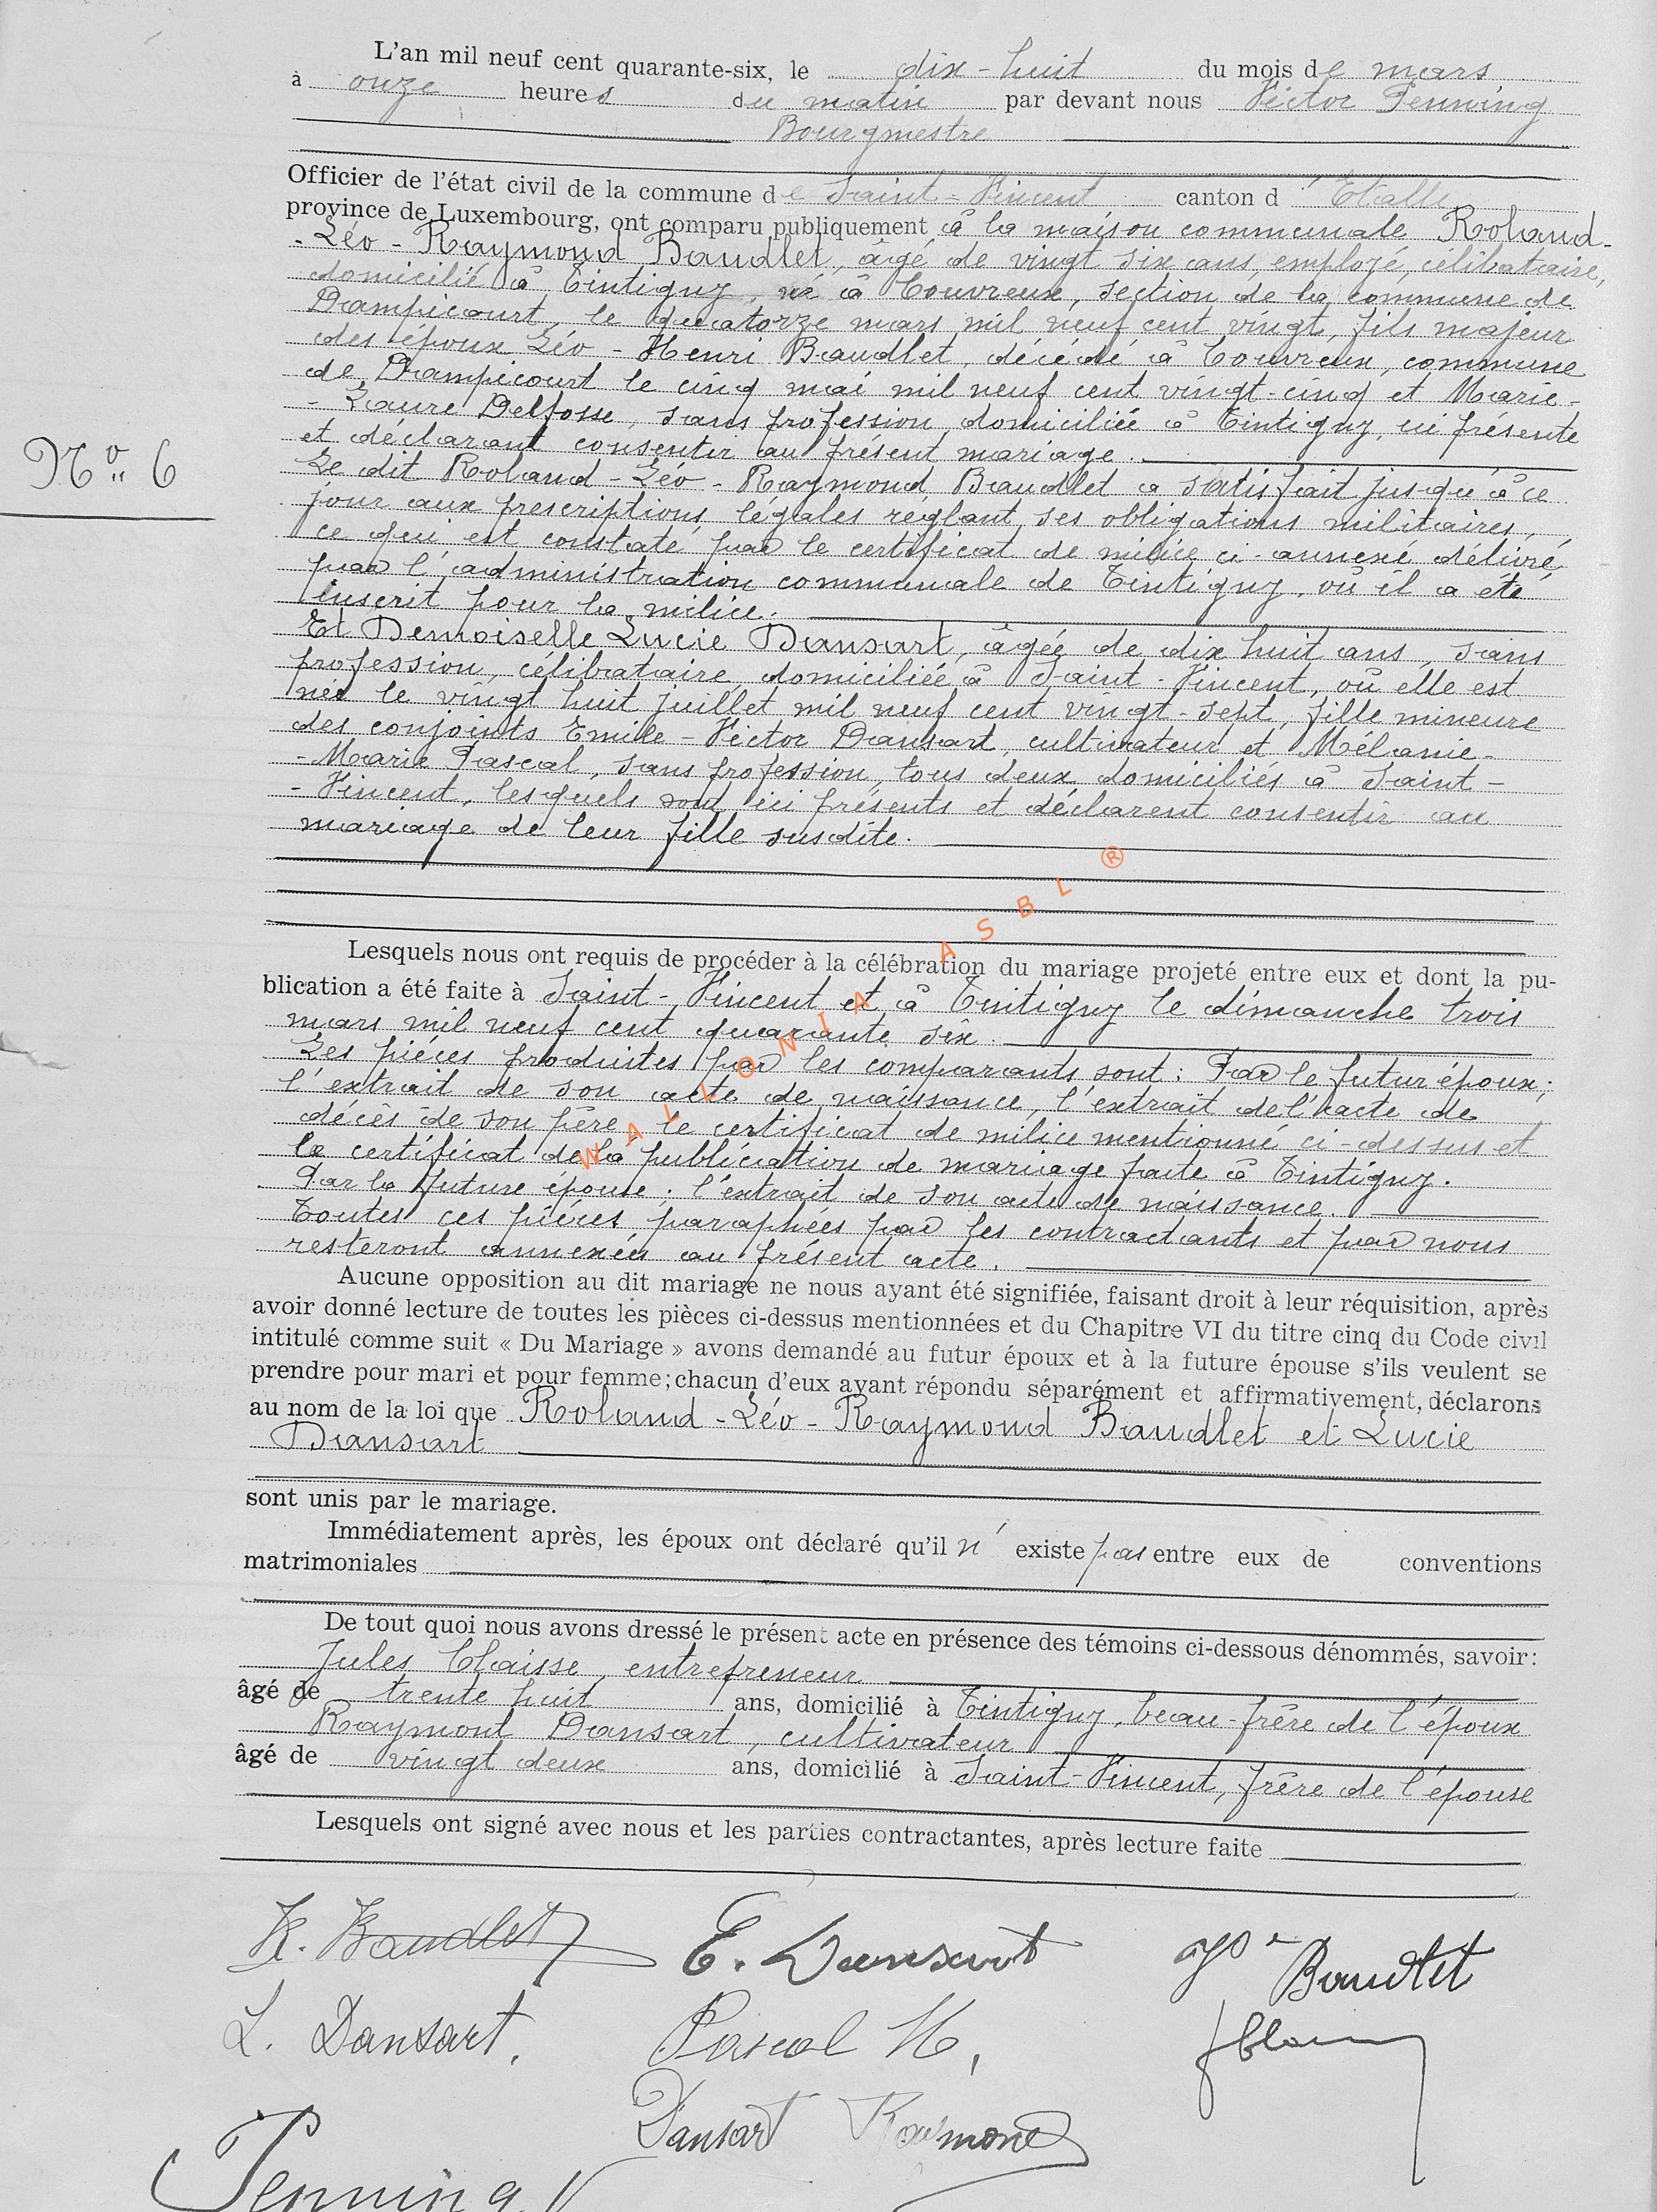 L'an mil neuf cent quarante-six, le dix-huit du mois de mars
à onze heures du matin par devant nous Victor Penning
Bourgmestre
Officier de l'état civil de la commune de Saint-Vincent canton d'Etalle
province de Luxembourg, ont comparu publiquement à la maison communale Roland-
-Léo-Raymond Baudlet, âgé de vingt six ans, employé, célibataire,
domicilié à Tintigny, né à Couvreux, section de la commune de
Dampicourt, le quatorze mars mil neuf cent vingt, fils majeur
des époux Léo-Henri Baudlet, décédé à Couvreux, commune
de Dampicourt le cinq mai mil neuf cent vingt-cinq et Marie-
-Laure Delfosse, sans profession, domiciliée à Tintigny, ici présente
et déclarant consentir au présent mariage.
N° 6
Le dit Roland-Léo-Raymond Baudlet a satisfait jusqu'à ce
jour aux prescriptions légales réglant ses obligations militaires,
ce qui est constaté par le certificat de milice ci-annexé délivré
par l'administration communale de Tintigny, où il a été
inscrit pour la milice.
Et Demoiselle Lucie Dansart, âgée de dix huit ans, sans
profession, célibataire, domiciliée à Saint-Vincent, où elle est
née le vingt huit juillet mil neuf cent vingt-sept, fille mineure
des conjoints Emile-Victor Dansart, cultivateur et Mélanie-
-Marie Pascal, sans profession, tous deux domiciliés à Saint-
-Vincent, lesquels sont ici présents et déclarent consentir au
mariage de leur fille susdite.
WALLONIA ASBL ®
Lesquels nous ont requis de procéder à la célébration du mariage projeté entre eux et dont la pu-
blication a été faite à Saint-Vincent et à Tintigny le dimanche trois
mars mil neuf cent quarante six.
Les pièces produites par les comparants sont: Par le futur époux;
l'extrait de son acte de naissance, l'extrait de l'acte de
décès de son père, le certificat de milice mentionné ci-dessus et
le certificat de la publication de mariage faite à Tintigny.
Par la future épouse: l'extrait de son acte de naissance.
Toutes ces pièces paraphées par les contractants et par nous
resteront annexées au présent acte.
Aucune opposition au dit mariage ne nous ayant été signifiée, faisant droit à leur réquisition, après
avoir donné lecture de toutes les pièces ci-dessus mentionnées et du Chapitre VI du titre cinq du Code civil
intitulé comme suit « Du Mariage » avons demandé au futur époux et à la future épouse s'ils veulent se
prendre pour mari et pour femme; chacun d'eux ayant répondu séparément et affirmativement, déclarons
au nom de la loi que Roland-Léo-Raymond Baudlet et Lucie
Dansart
sont unis par le mariage.
Immédiatement après, les époux ont déclaré qu'il n'existe pas entre eux de conventions
matrimoniales
De tout quoi nous avons dressé le présent acte en présence des témoins ci-dessous dénommés, savoir:
Jules Claisse, entrepreneur
âgé de trente huit ans, domicilié à Tintigny, beau-frère de l'époux
Raymont Dansart, cultivateur
âgé de vingt deux ans, domicilié à Saint-Vincent, frère de l'épouse
Lesquels ont signé avec nous et les parties contractantes, après lecture faite
R. Baudlet E. Dansart Baudlet
L. Dansart. Pascal M.
Dansart Raymond
Penning V